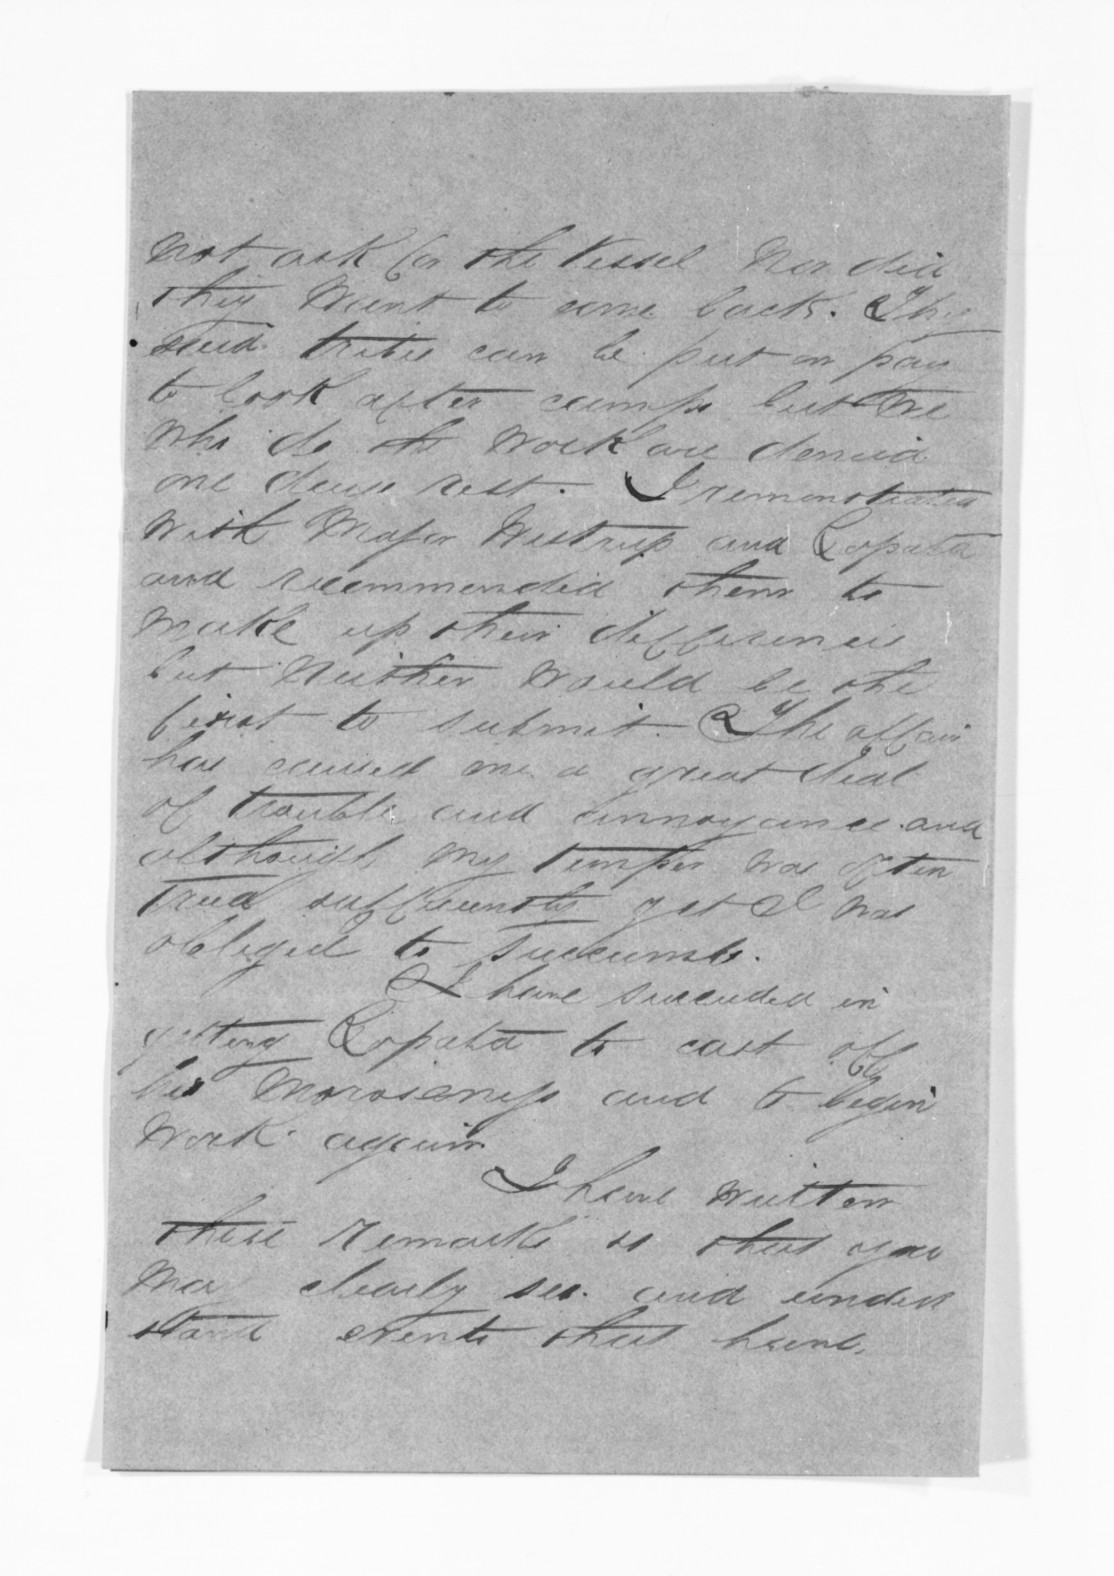 not ask for the Vessel Nor did
they Want to come back. They
said tribe can be put on pay
to look after camps but We
Who do the Work are denied
one days rest. I remonstrated
With Major Westrup and Lopata
and recommended them to
Make up their differences
but Neither Would be the
first to submit. The affair
has caused me a great deal
of trouble and annoyance. and
although My temper Was often
tried sufficiently yet I Was
obliged to succumb.
I have succeeded in
getting Lopata to cast off
his Moroseness and to begin
Work again
I have Written
these remarks so that you
May clearly see. and under
stand events that have.